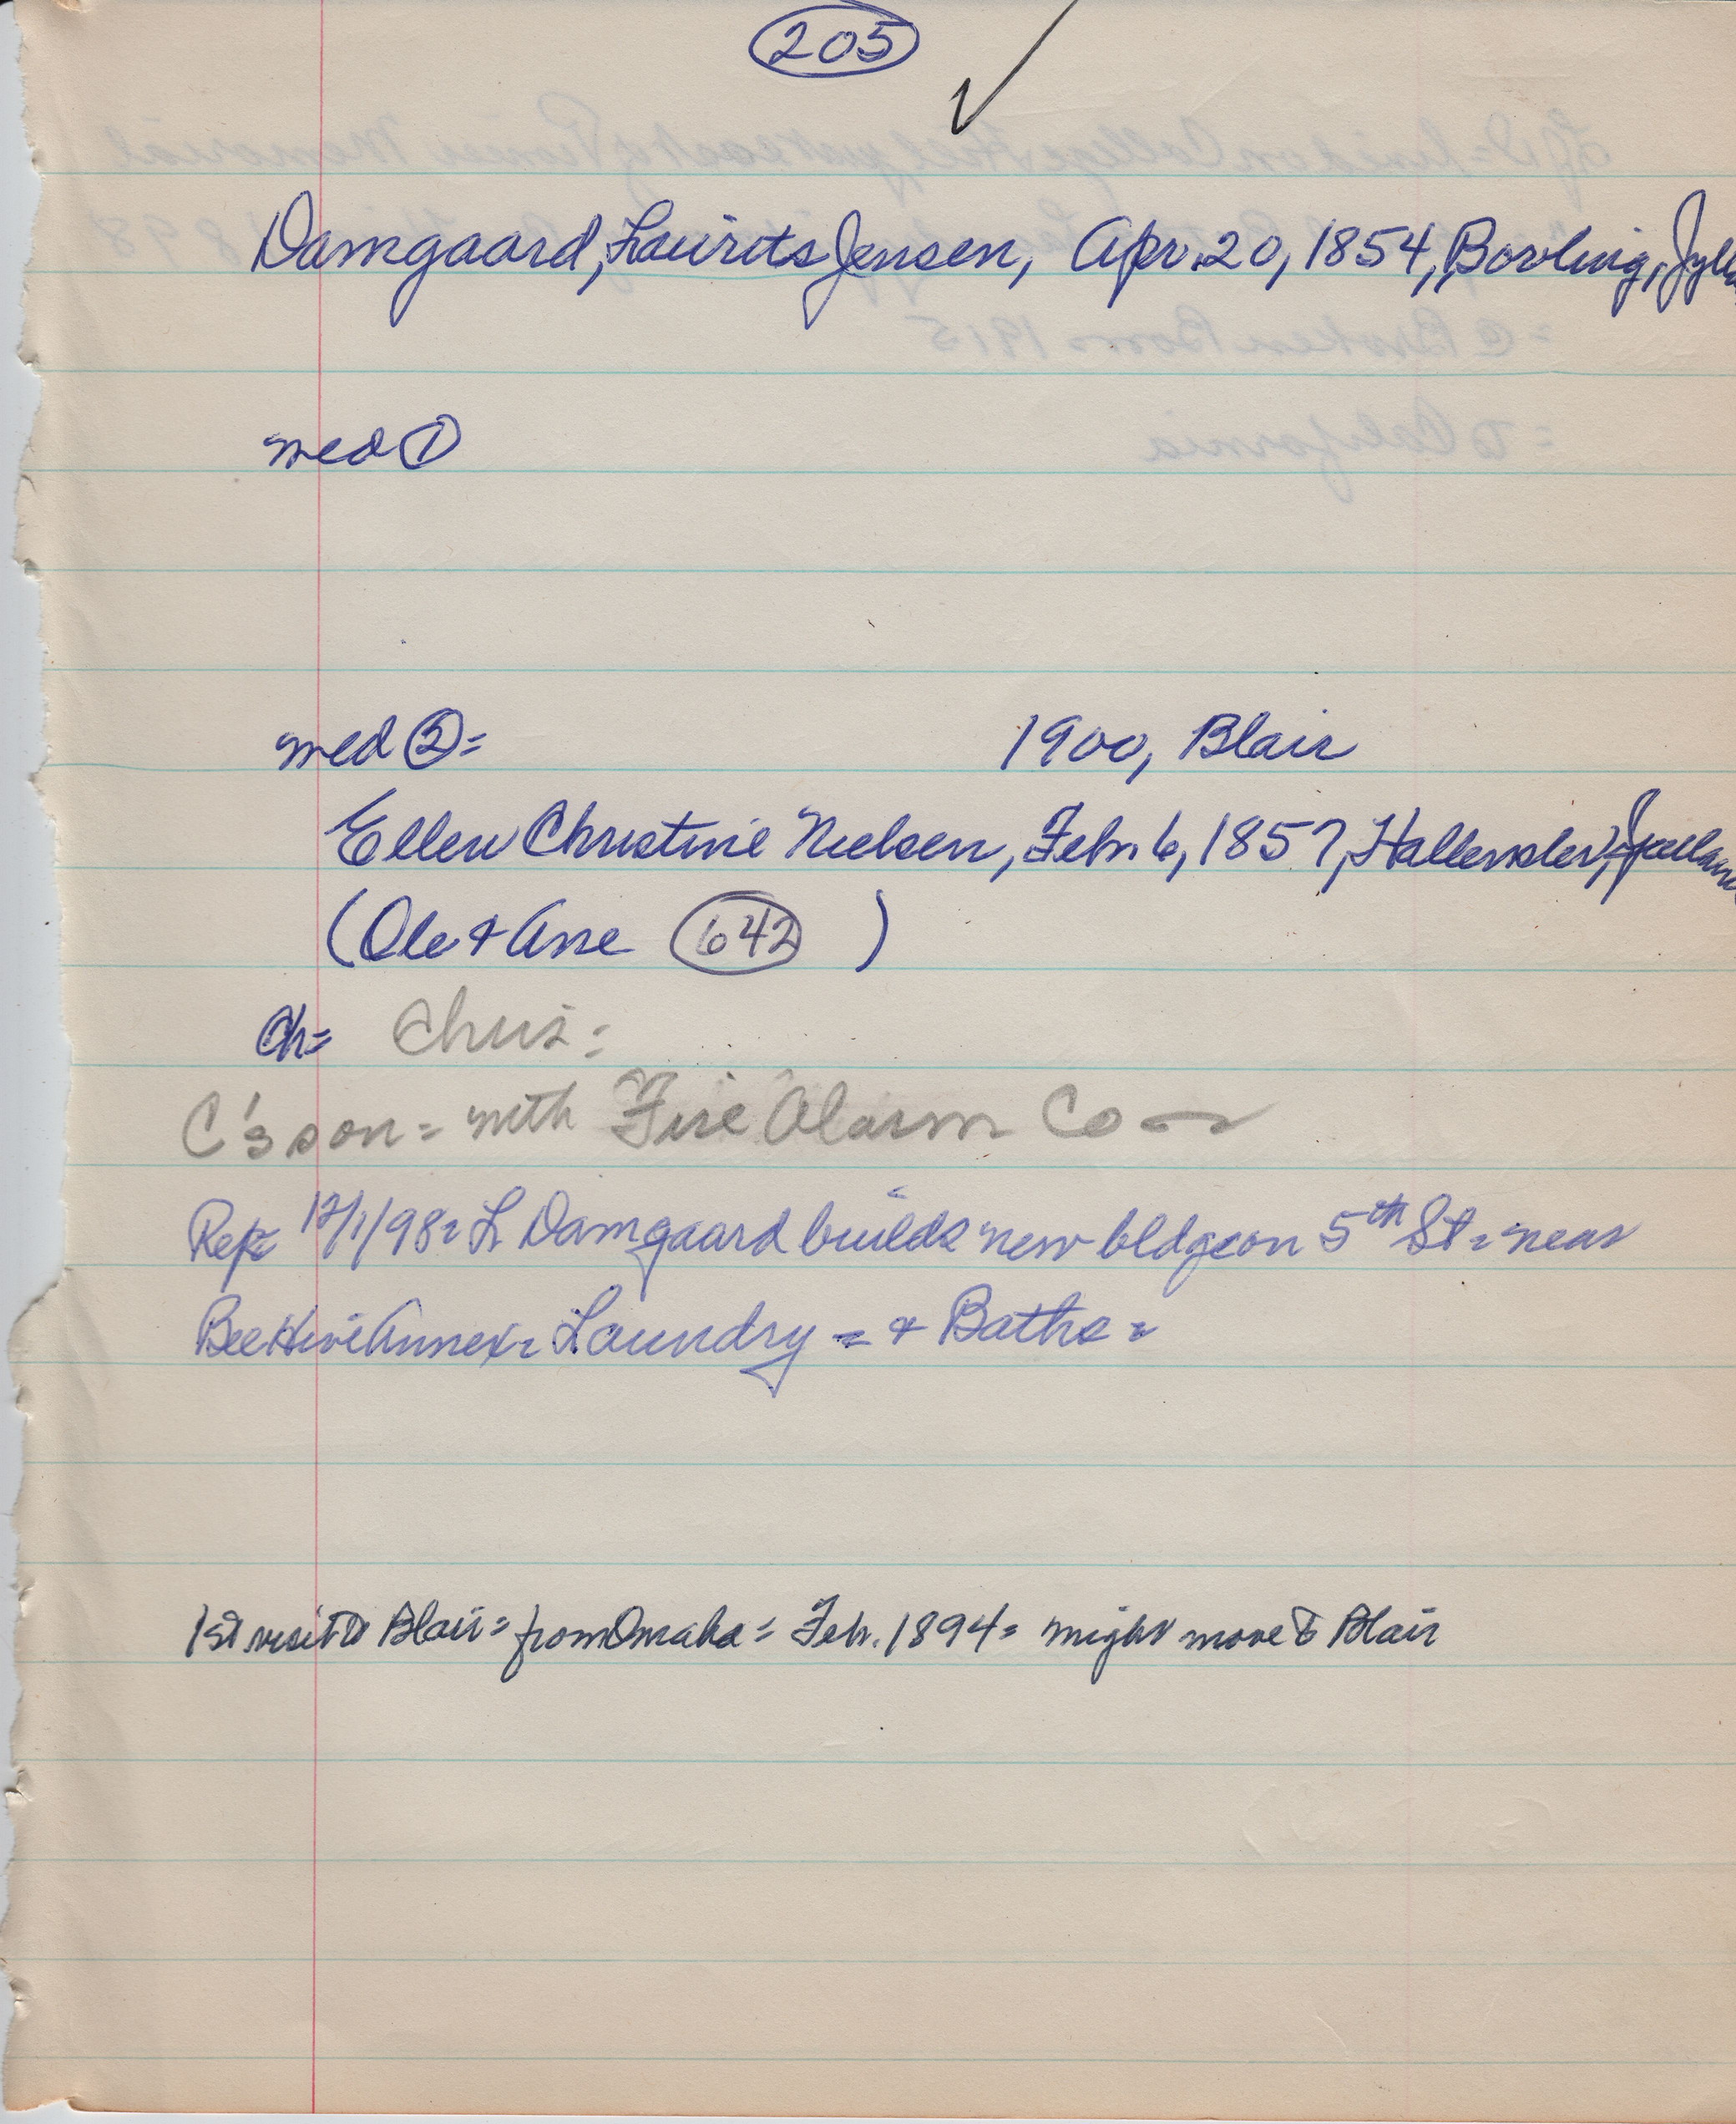 205 ✓
Damgaard, Laurits Jensen, Apr. 20, 1854, Bovling, Jylla
med ①
med ②= 1900, Blair
Ellen Christine Nielsen, Feb. 6, 1857, Jylland
(Ole & Ane 642 )
Ch= Chris=
C's son = with Fire Alarm Co
Rep= 12/1/98= L Damgaard builds new bldg on 5th St= near
Bee Hive Annex= Laundry = & Baths=
1st visit to Blair= from Omaha= Feb. 1894= might move to Blair